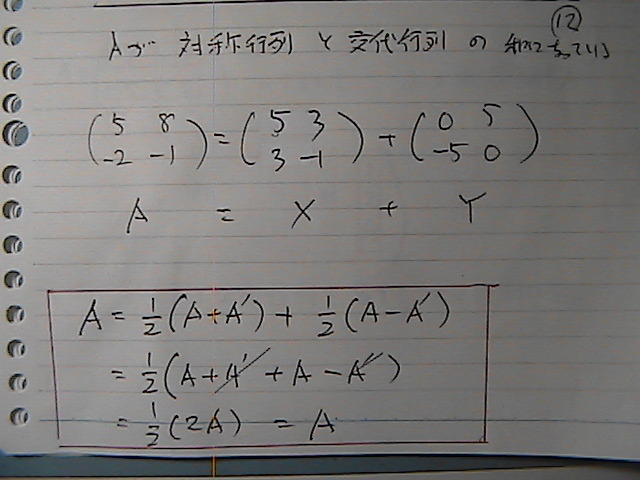 ⑫
Aが 対称行列 と 交代行列 の 和に
(5 8 -2 -1) = (5 3 3 -1) + (0 5 -5 0)
A = X + Y
A = 1/2 (A+A') + 1/2 (A-A')
= 1/2 (A+A' + A - A')
= 1/2 (2A) = A